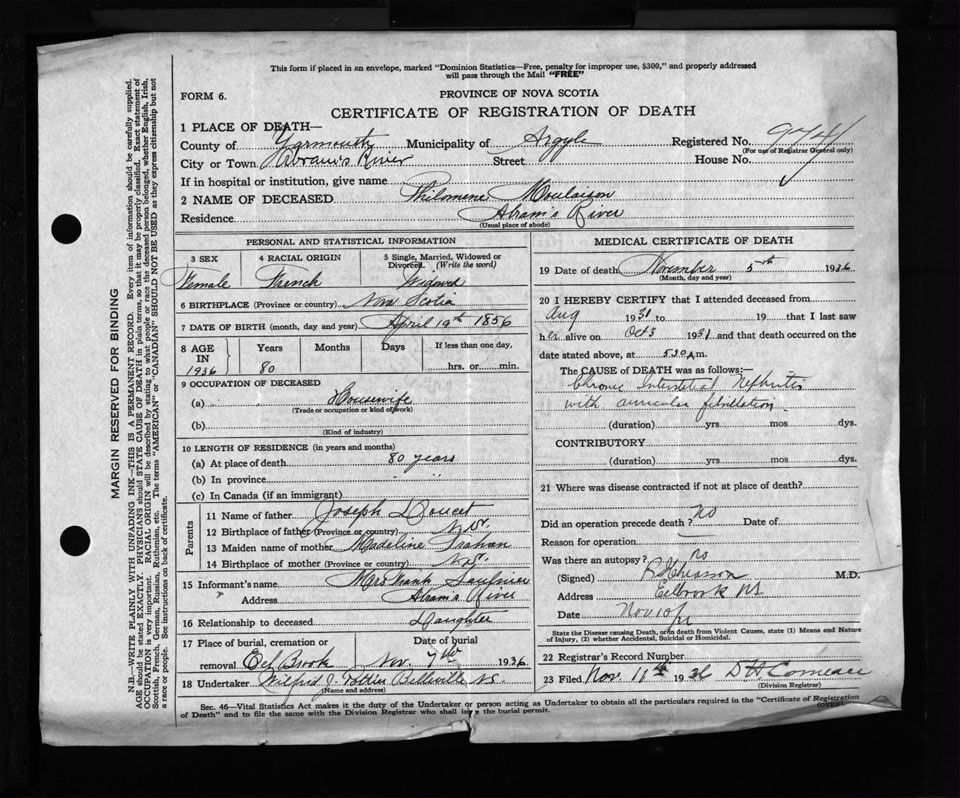 This form if placed in an envelope, marked "Dominion Statistics—Free, penalty for improper use, $300," and properly addressed
will pass through the Mail "FREE"
FORM 6.
PROVINCE OF NOVA SCOTIA
CERTIFICATE OF REGISTRATION OF DEATH
1 PLACE OF DEATH—
County of Yarmouth Municipality of Argyle Registered No.
(For use of Registrar General only)
City or Town Abram's River Street House No.
If in hospital or institution, give name
2 NAME OF DECEASED Philomene Moulaison
Residence Abram's River
(Usual place of abode)
PERSONAL AND STATISTICAL INFORMATION
3 SEX 4 RACIAL ORIGIN 5 Single, Married, Widowed or
Divorced. (Write the word)
Female French
6 BIRTHPLACE (Province or country) Nova Scotia
7 DATE OF BIRTH (month, day and year) April 19th 1856
8 AGE Years Months Days If less than one day,
IN
1936 80 hrs. or min.
9 OCCUPATION OF DECEASED
(a) Housewife
(Trade or occupation or kind of work)
(b)
(Kind of industry)
10 LENGTH OF RESIDENCE (in years and months)
(a) At place of death 80 years
(b) In province " "
(c) In Canada (if an immigrant)
Parents
11 Name of father Joseph Doucet
12 Birthplace of father (Province or country) N.S.
13 Maiden name of mother Madeline Trahan
14 Birthplace of mother (Province or country) N.S.
15 Informant's name Mrs Frank Saulnier
Address Abram's River
16 Relationship to deceased Daughter
17 Place of burial, cremation or Date of burial
removal Eel Brook Nov. 7th 1936
18 Undertaker Wilfred J. Pottier Belleville N.S.
(Name and address)
MEDICAL CERTIFICATE OF DEATH
19 Date of death November 5th 1936
(Month, day and year)
20 I HEREBY CERTIFY that I attended deceased from
Aug 1931 to 19 that I last saw
her alive on Oct 3 1931 and that death occurred on the
date stated above, at 5.30 A m.
The CAUSE of DEATH was as follows:—
Chronic Interstitial Nephritis
with auricular fibrillation
(duration) yrs mos dys.
CONTRIBUTORY
(duration) yrs mos dys.
21 Where was disease contracted if not at place of death?
Did an operation precede death? no Date of
Reason for operation
Was there an autopsy? no
(Signed) M.D.
Address Eelbrook NS
Date Nov 10
State the Disease causing Death, or in death from Violent Causes, state (1) Means and Nature
of Injury, (2) whether Accidental, Suicidal or Homicidal.
22 Registrar's Record Number
23 Filed Nov. 11th 1936 D H Comeau
(Division Registrar)
Sec. 46—Vital Statistics Act makes it the duty of the Undertaker or person acting as Undertaker to obtain all the particulars required in the "Certificate of Registration
of Death" and to file the same with the Division Registrar who shall issue the burial permit. (OVER)
MARGIN RESERVED FOR BINDING
N.B.—WRITE PLAINLY WITH UNFADING INK—THIS IS A PERMANENT RECORD. Every item of information should be carefully supplied.
AGE should be stated EXACTLY. PHYSICIANS should STATE CAUSE OF DEATH in plain terms, so that it may be properly classified. Exact statement of
OCCUPATION is very important. RACIAL ORIGIN will be described by stating to what people or race the deceased person belonged, whether English, Irish,
Scottish, French, German, Russian, Ruthenian, etc. The terms "AMERICAN" or "CANADIAN" SHOULD NOT BE USED as they express citizenship but not
a race or people. See instructions on back of certificate.